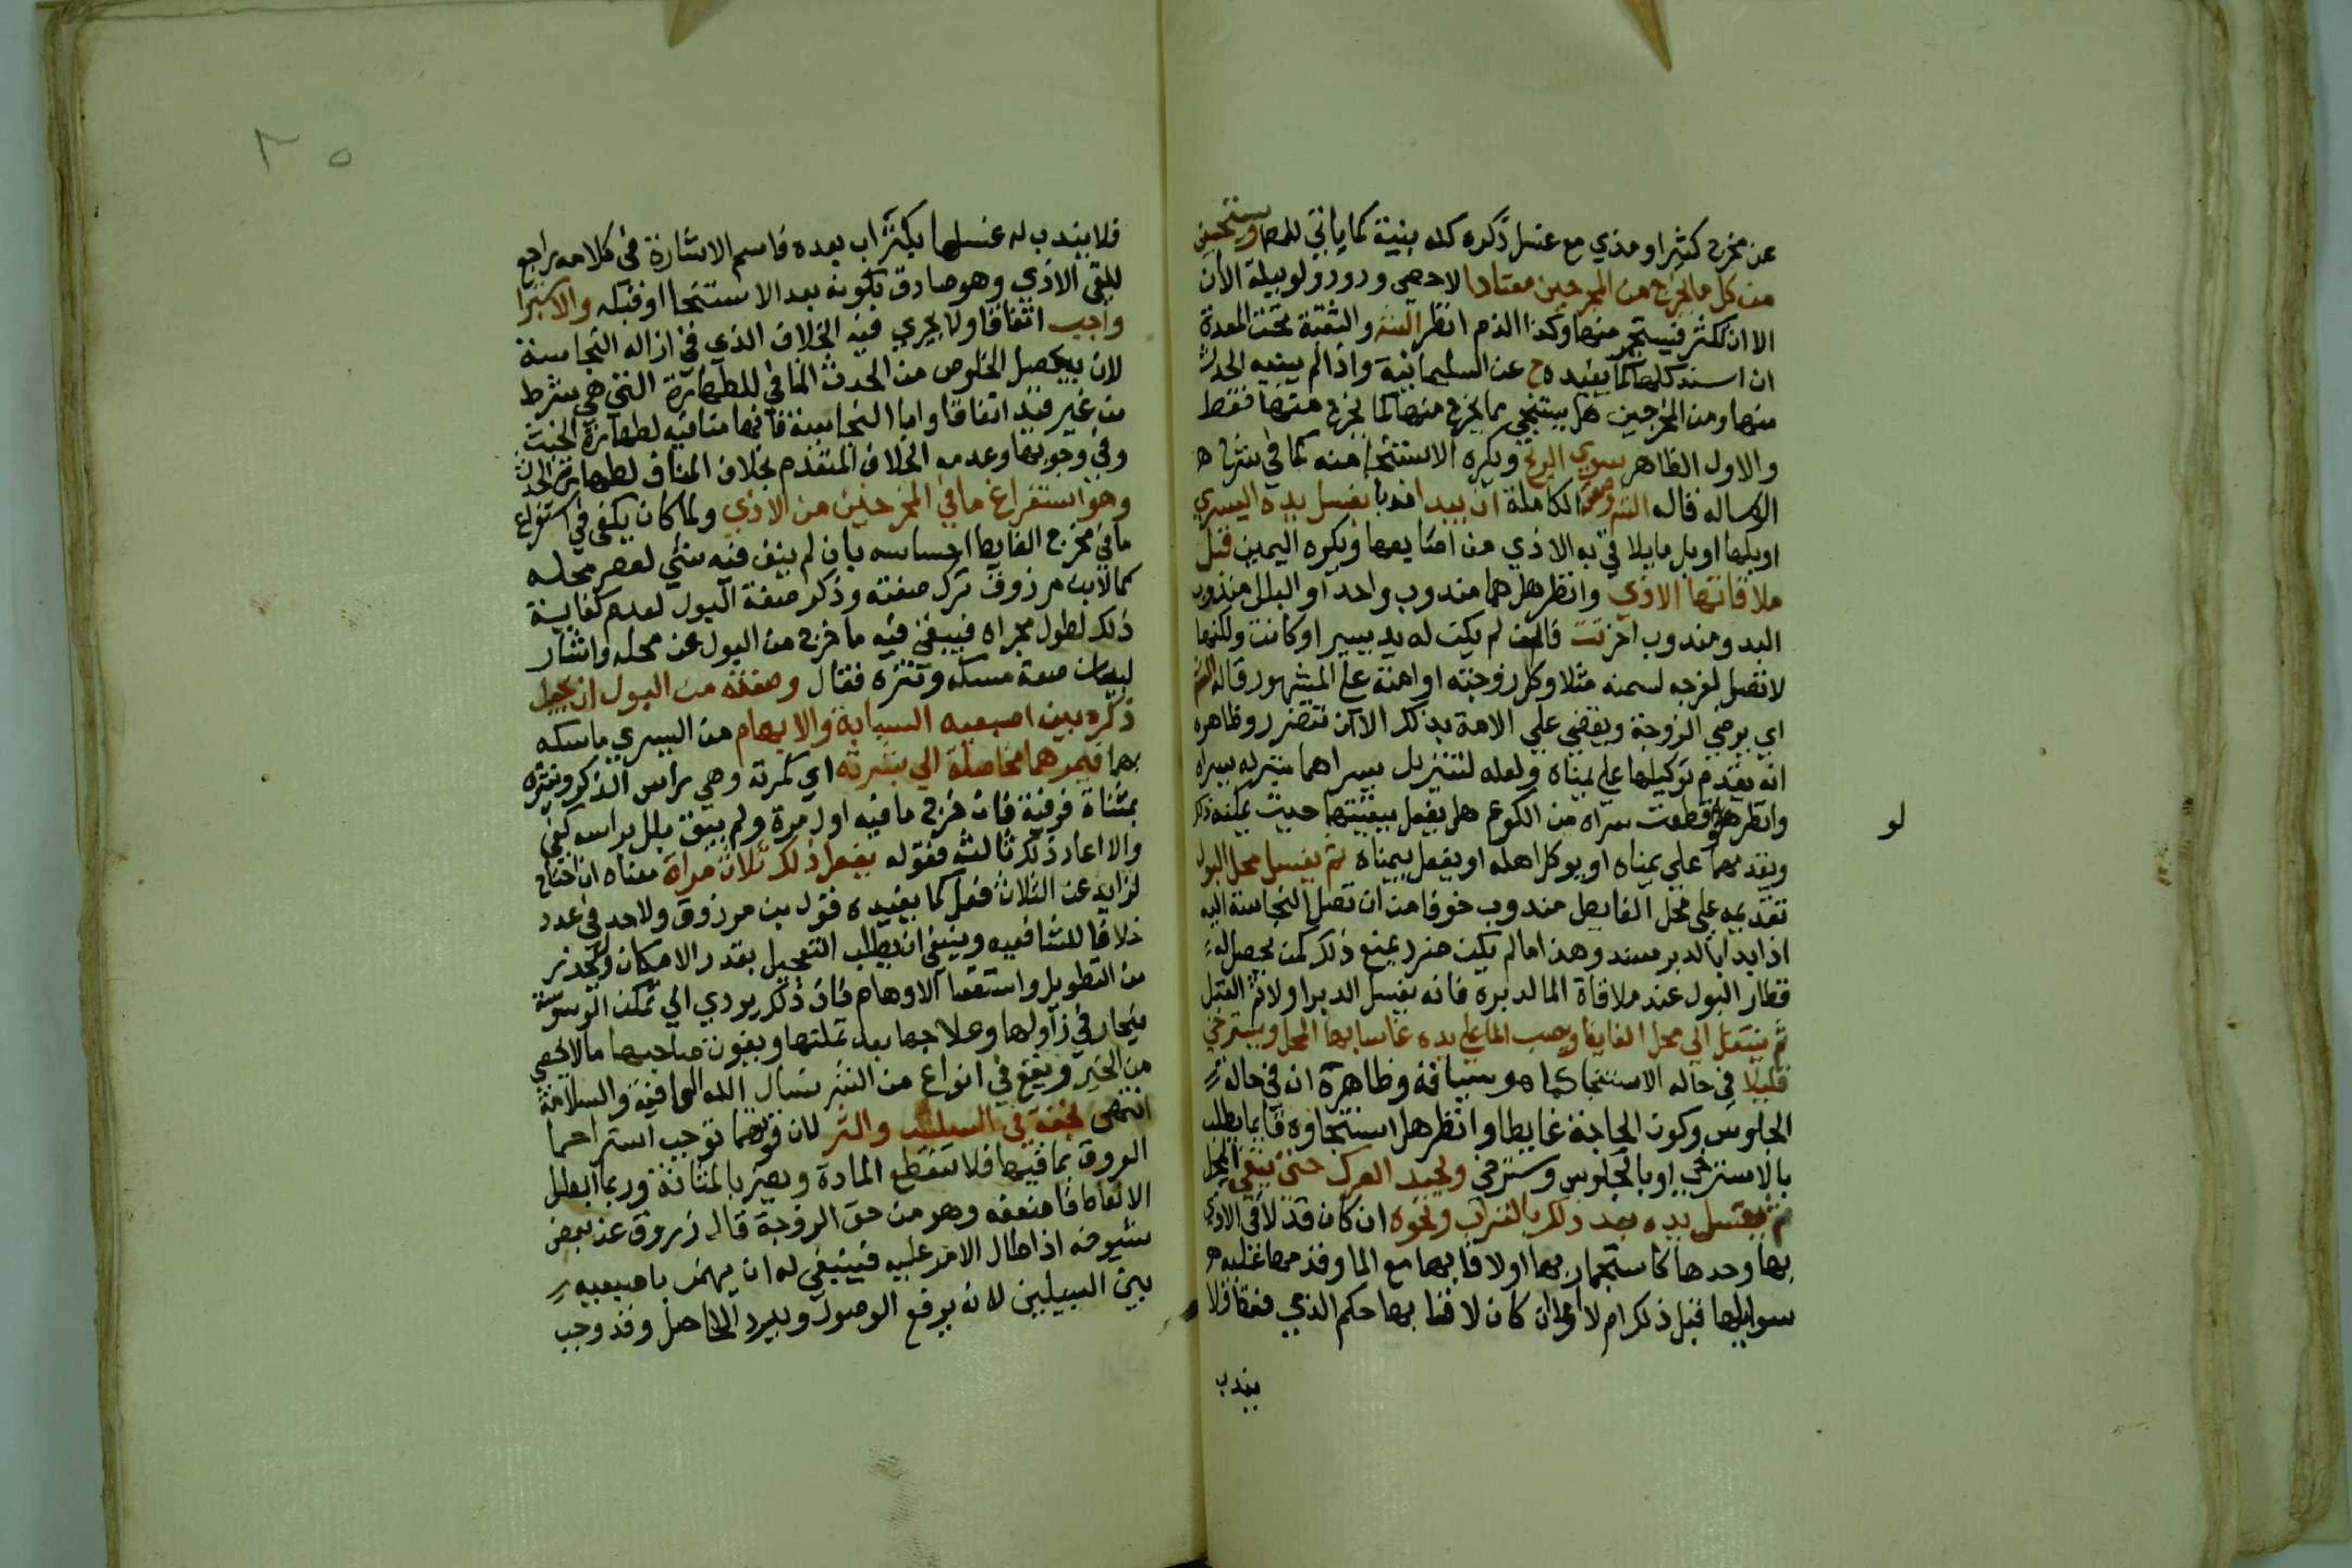 عن مخرج كثيرا ومذي مع غسل ذكره كله بنية كما ياتي للمص ويستنجي
من كل ما يخرج من المخرجين معتادا لا حصى ودود ولو ببلة الا ان
الا ان تكثر فيستجمر منها وكذا الدم انظر الشر والثقبة تحت المعدة
ان انسد كلها كما يفيده ح عن السليمانية واذا لم ينسد الحدث
منها ومن المخرجين هل يستنجي مما يخرج منها كما يخرج منهما فقط
والاول الظاهر سوي الريح ويكره الاستنجا منه كما في شرح
الرساله قاله الشر وصفته الكاملة ان يبدا ندبا بغسل يده اليسري
او بلها او بل ما يلاقي به الاذي من اصابعها ويكره اليمين قبل
ملاقاتها الاذي وانظر هل هما مندوب واحد او البلل مندوب
اليد ومندوب اخر فان لم يكن له يد يسرا او كانت ولكنها
لا تصل لفرجه لسمنه مثلا وكل زوجته او امته علي المشهور قاله الشر
اي برضي الزوجة ويقضي علي الامة بذلك الا ان تتضرر وظاهره
انه يقدم توكيلها علي يمناه ولعله لتنزيل يسراهما منزله يسراه
وانظر هل لو قطعت يسراه من الكوع هل يفعل ببقيتها حيث يمكنه ذلك
لو
ويقدمها علي يمناه او يوكل اهله او يفعل بيمناه ثم يغسل محل البول
تقديمه علي محل الغايط مندوب خوفا من ان تصل النجاسة اليه
اذا بدا بالدبر سند وهذا ما لم يكن ضرر يمنع ذلك كمن يحصل له
قطار البول عند ملاقاة الما لدبره فانه يغسل الدبر اولا ثم القبل
ثم ينتقل الي محل الغايط ويصب الما علي يده غاسلا بها المحل ويسترخي
قليلا في حاله الاستنجا كما هو سياقه وظاهره انه في حاله
الجلوس وكون الحاجة غايطا وانظر هل استنجاوه قايما يطلب
بالاسترخي او بالجلوس وسترخي ويجيد العرك حتي ينقي المحل
ثم يغسل يده بعد ذلك بالتراب ونحوه ان كان قد لاقي الاذي
بها وحدها كاستجمار بها او لاقا بها مع الما وقد مها غلبه
سوا بلها قبل ذلك ام لا واما ان كان لاقا بها حكم الاذي فقط فلا
يندب
٣٥
فلا يندب له غسلها بكتراب بعده فاسم الاشارة في كلامه راجع
للقي الاذي وهو صادق بكونه بعد الاستنجا او قبله والاستبرا
واجب اتفاقا ولا يجري فيه الخلاف الذي في ازاله النجاسة
لان به يحصل الخلوص من الحدث المنافي للطهارة التي هي شرط
من غير قيد اتفاقا واما النجاسة فانها منافيه لطهارة الخبث
وفي وجوبها وعدمه الخلاف المتقدم بخلاف المناف لطهارة الحدث
وهو استفراغ ما في المخرجين من الاذي ولما كان يكفي في استفراغ
ما في مخرج الغايط احساسه بان لم يبق فيه شي لعصر محله
كما لابن مرزوق ترك صفته وذكر صفة البول لعدم كفاية
ذلك لطول مجراه فيبقي فيه ما خرج من البول عن محله واشار
لبيان صفة مسكه ونتره فقال وصفته من البول ان يجعل
ذكره بين اصبعيه السبابة والابهام من اليسري ماسكه
بهما فيمرهما من اصله الي بسرته اي كمرته وهي راس الذكر وينتره
بمثناة فوقية فان خرج ما فيه اول مرة ولم يبق بلل براسه كفي
والا اعاد ذلك ثالثه فقوله يفعل ذلك ثلاث مراة معناه ان احتاج
لزايد عن الثلاث فعل كما يفيده قول بن مرزوق ولا حد في عدد
خلافا للشافعيه وينبغي ان يطلب التعجيل بقدر الامكان ويحذر
من التطويل واستقصا الاوهام فان ذلك يودي الي تمكن الوسوسة
يتحار في زاولها وعلاجها بعد تمكنها ويفوت صاحبها ما لا يحصي
من الخير ويقع في انواع من الشر نسال الله العافيه والسلامة
انتهي بخفة في السلت والنتر لان قوتهما توجب استرخا
العروق بما فيها فلا تنقطع المادة ويضر بالمثانة وربما ابطل
الانعاظ او اضعفه وهو من حق الزوجة قاله زروق عن بعض
شيوخه اذا طال الامر عليه فينبغي له ان يهمز باصبعيه
بين السبيلين لانه يرفع الوصول ويرد الحاصل وقد وجب